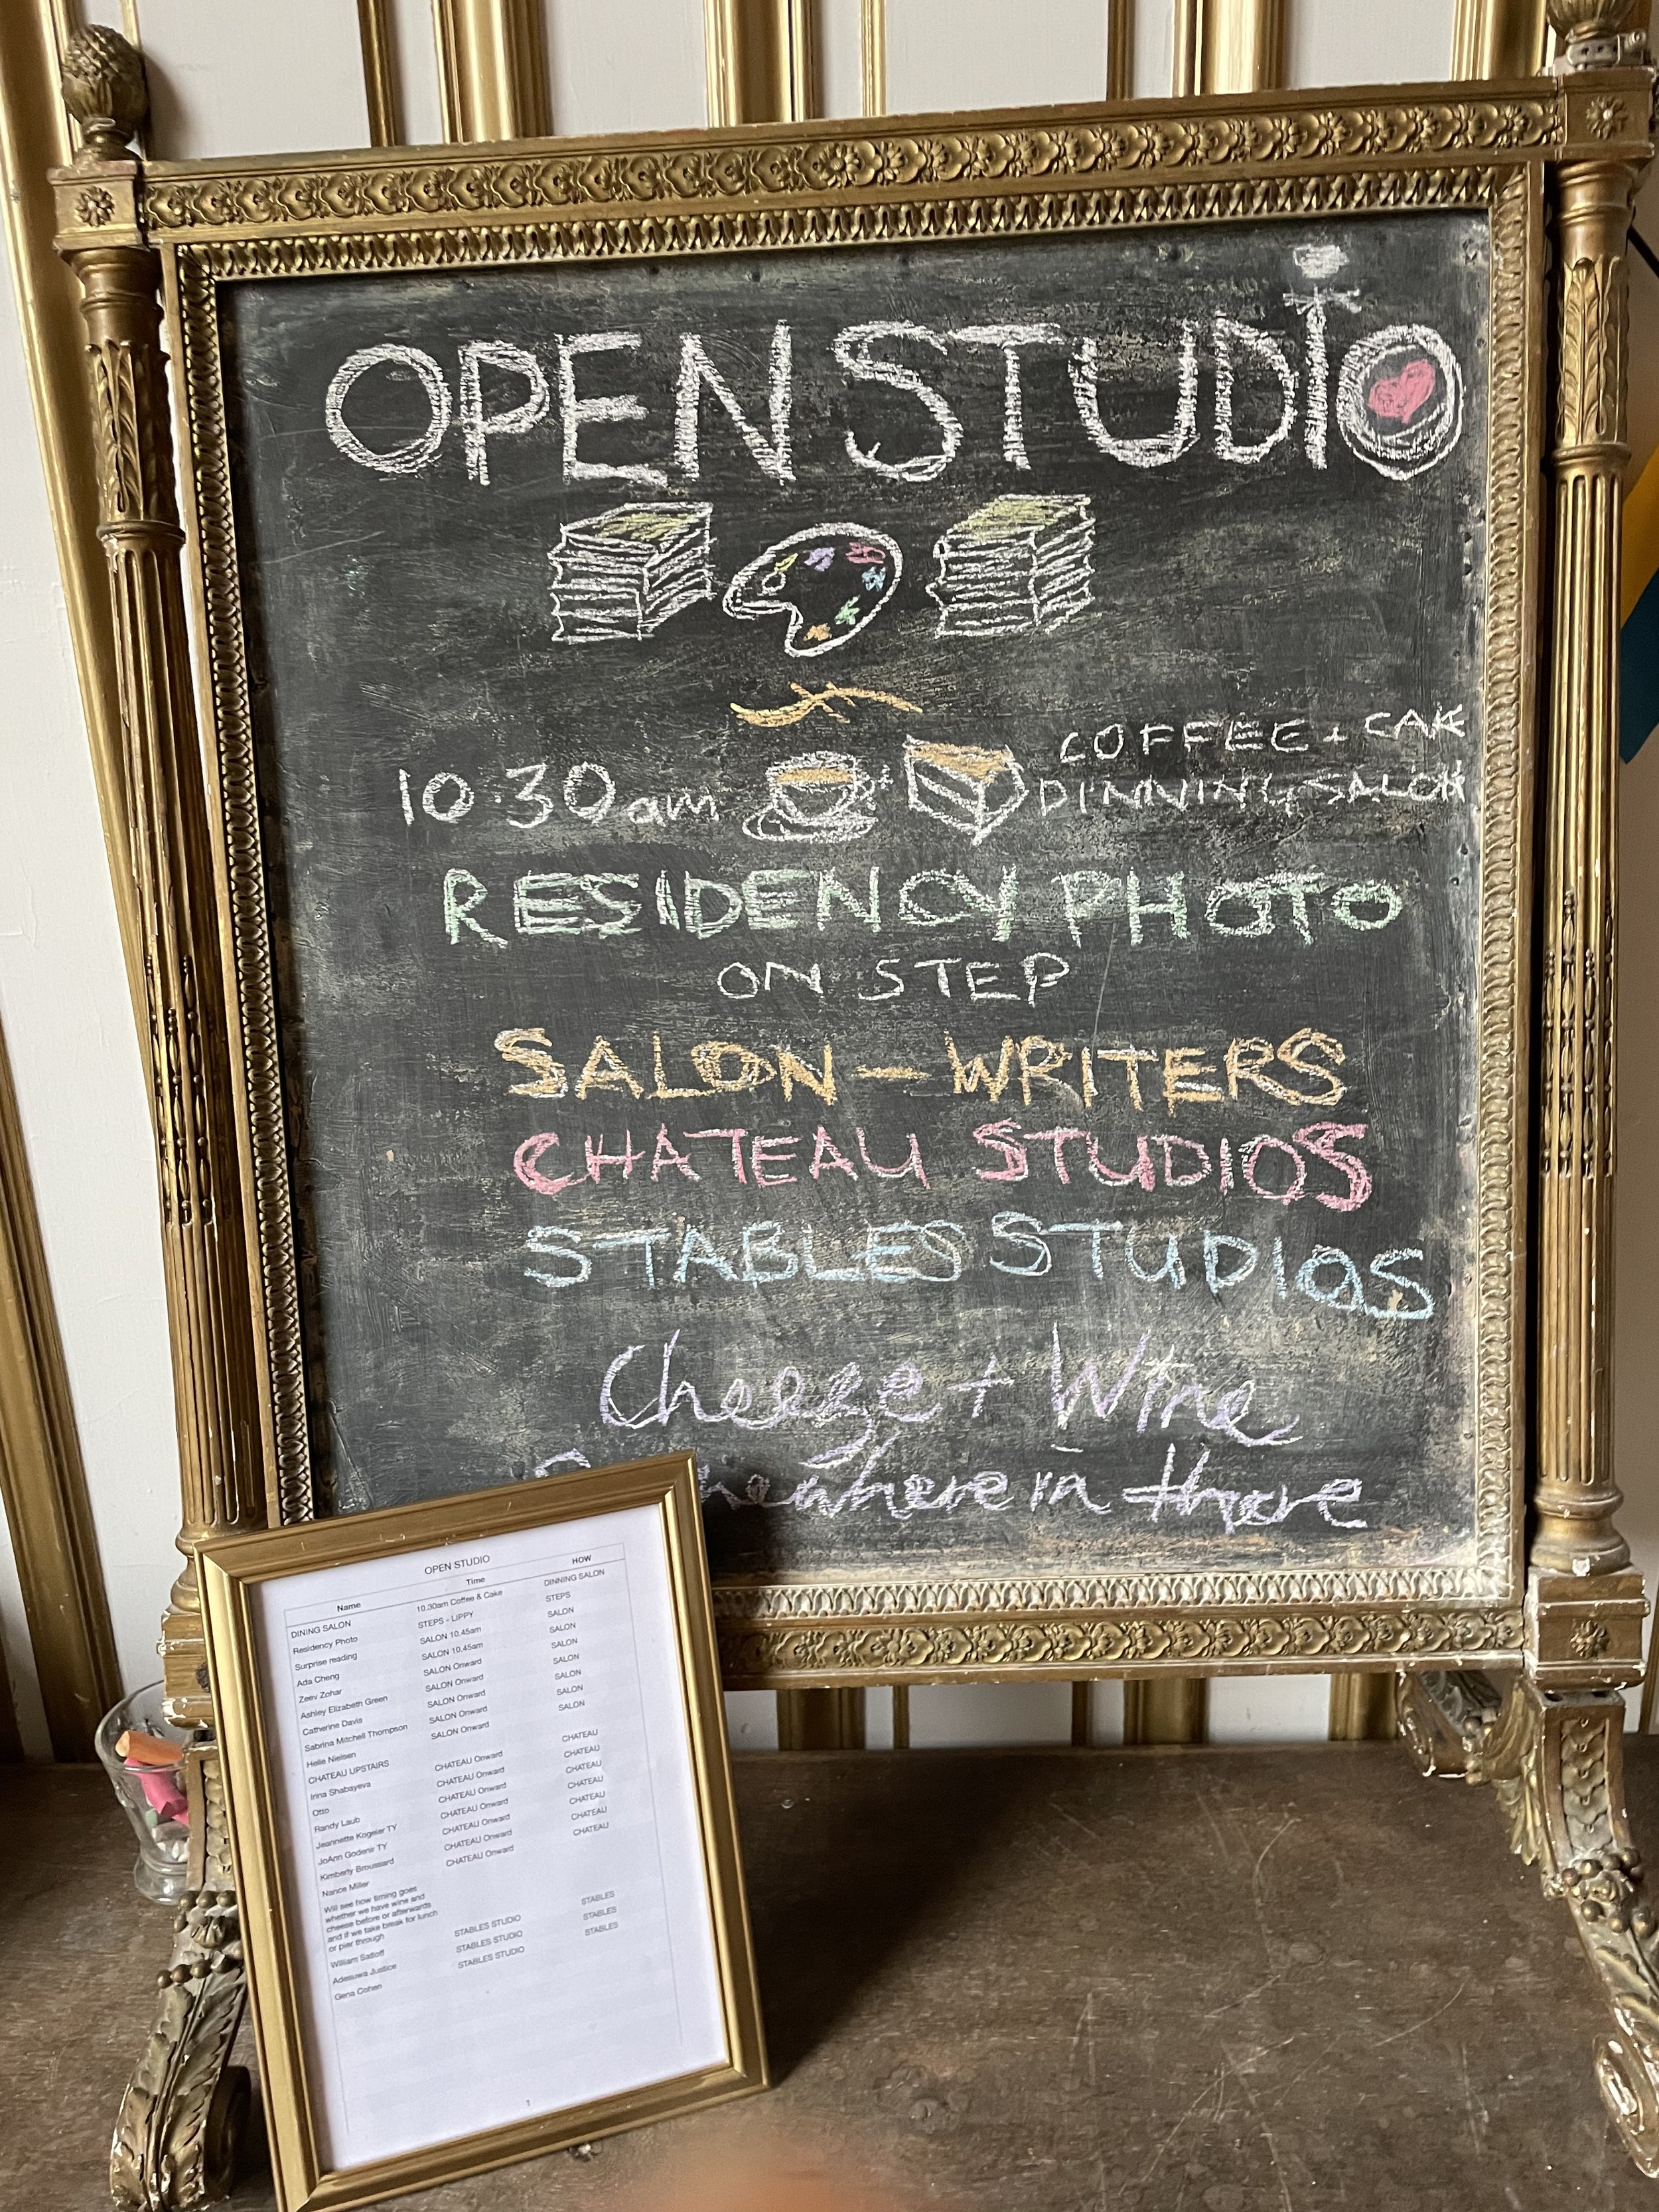 OPEN STUDIO
10.30am
COFFEE + CAK
DINNING SALON
RESIDENCY PHOTO
ON STEP
SALON — WRITERS
CHATEAU STUDIOS
STABLES STUDIOS
Cheese + Wine
in there
OPEN STUDIO
Name Time HOW
DINING SALON 10.30am Coffee & Cake DINNING SALON
Residency Photo STEPS - LIPPY STEPS
Surprise reading SALON 10.45am SALON
Ada Cheng SALON 10.45am SALON
Zeev Zohar SALON Onward SALON
Ashley Elizabeth Green SALON Onward SALON
Catherine Davis SALON Onward SALON
Sabrina Mitchell Thompson SALON Onward SALON
Helle Nielsen SALON Onward SALON
CHATEAU UPSTAIRS
Irina Shabayeva CHATEAU Onward CHATEAU
Otto CHATEAU Onward CHATEAU
Randy Laub CHATEAU Onward CHATEAU
Jeannette Kogeler TY CHATEAU Onward CHATEAU
JoAnn Godenir TY CHATEAU Onward CHATEAU
Kimberly Broussard CHATEAU Onward CHATEAU
Nance Miller CHATEAU Onward CHATEAU
Will see how timing goes
whether we have wine and
cheese before or afterwards
and if we take break for lunch
or pier through
William Satloff STABLES STUDIO STABLES
Adesuwa Justice STABLES STUDIO STABLES
Gena Cohen STABLES STUDIO STABLES
1